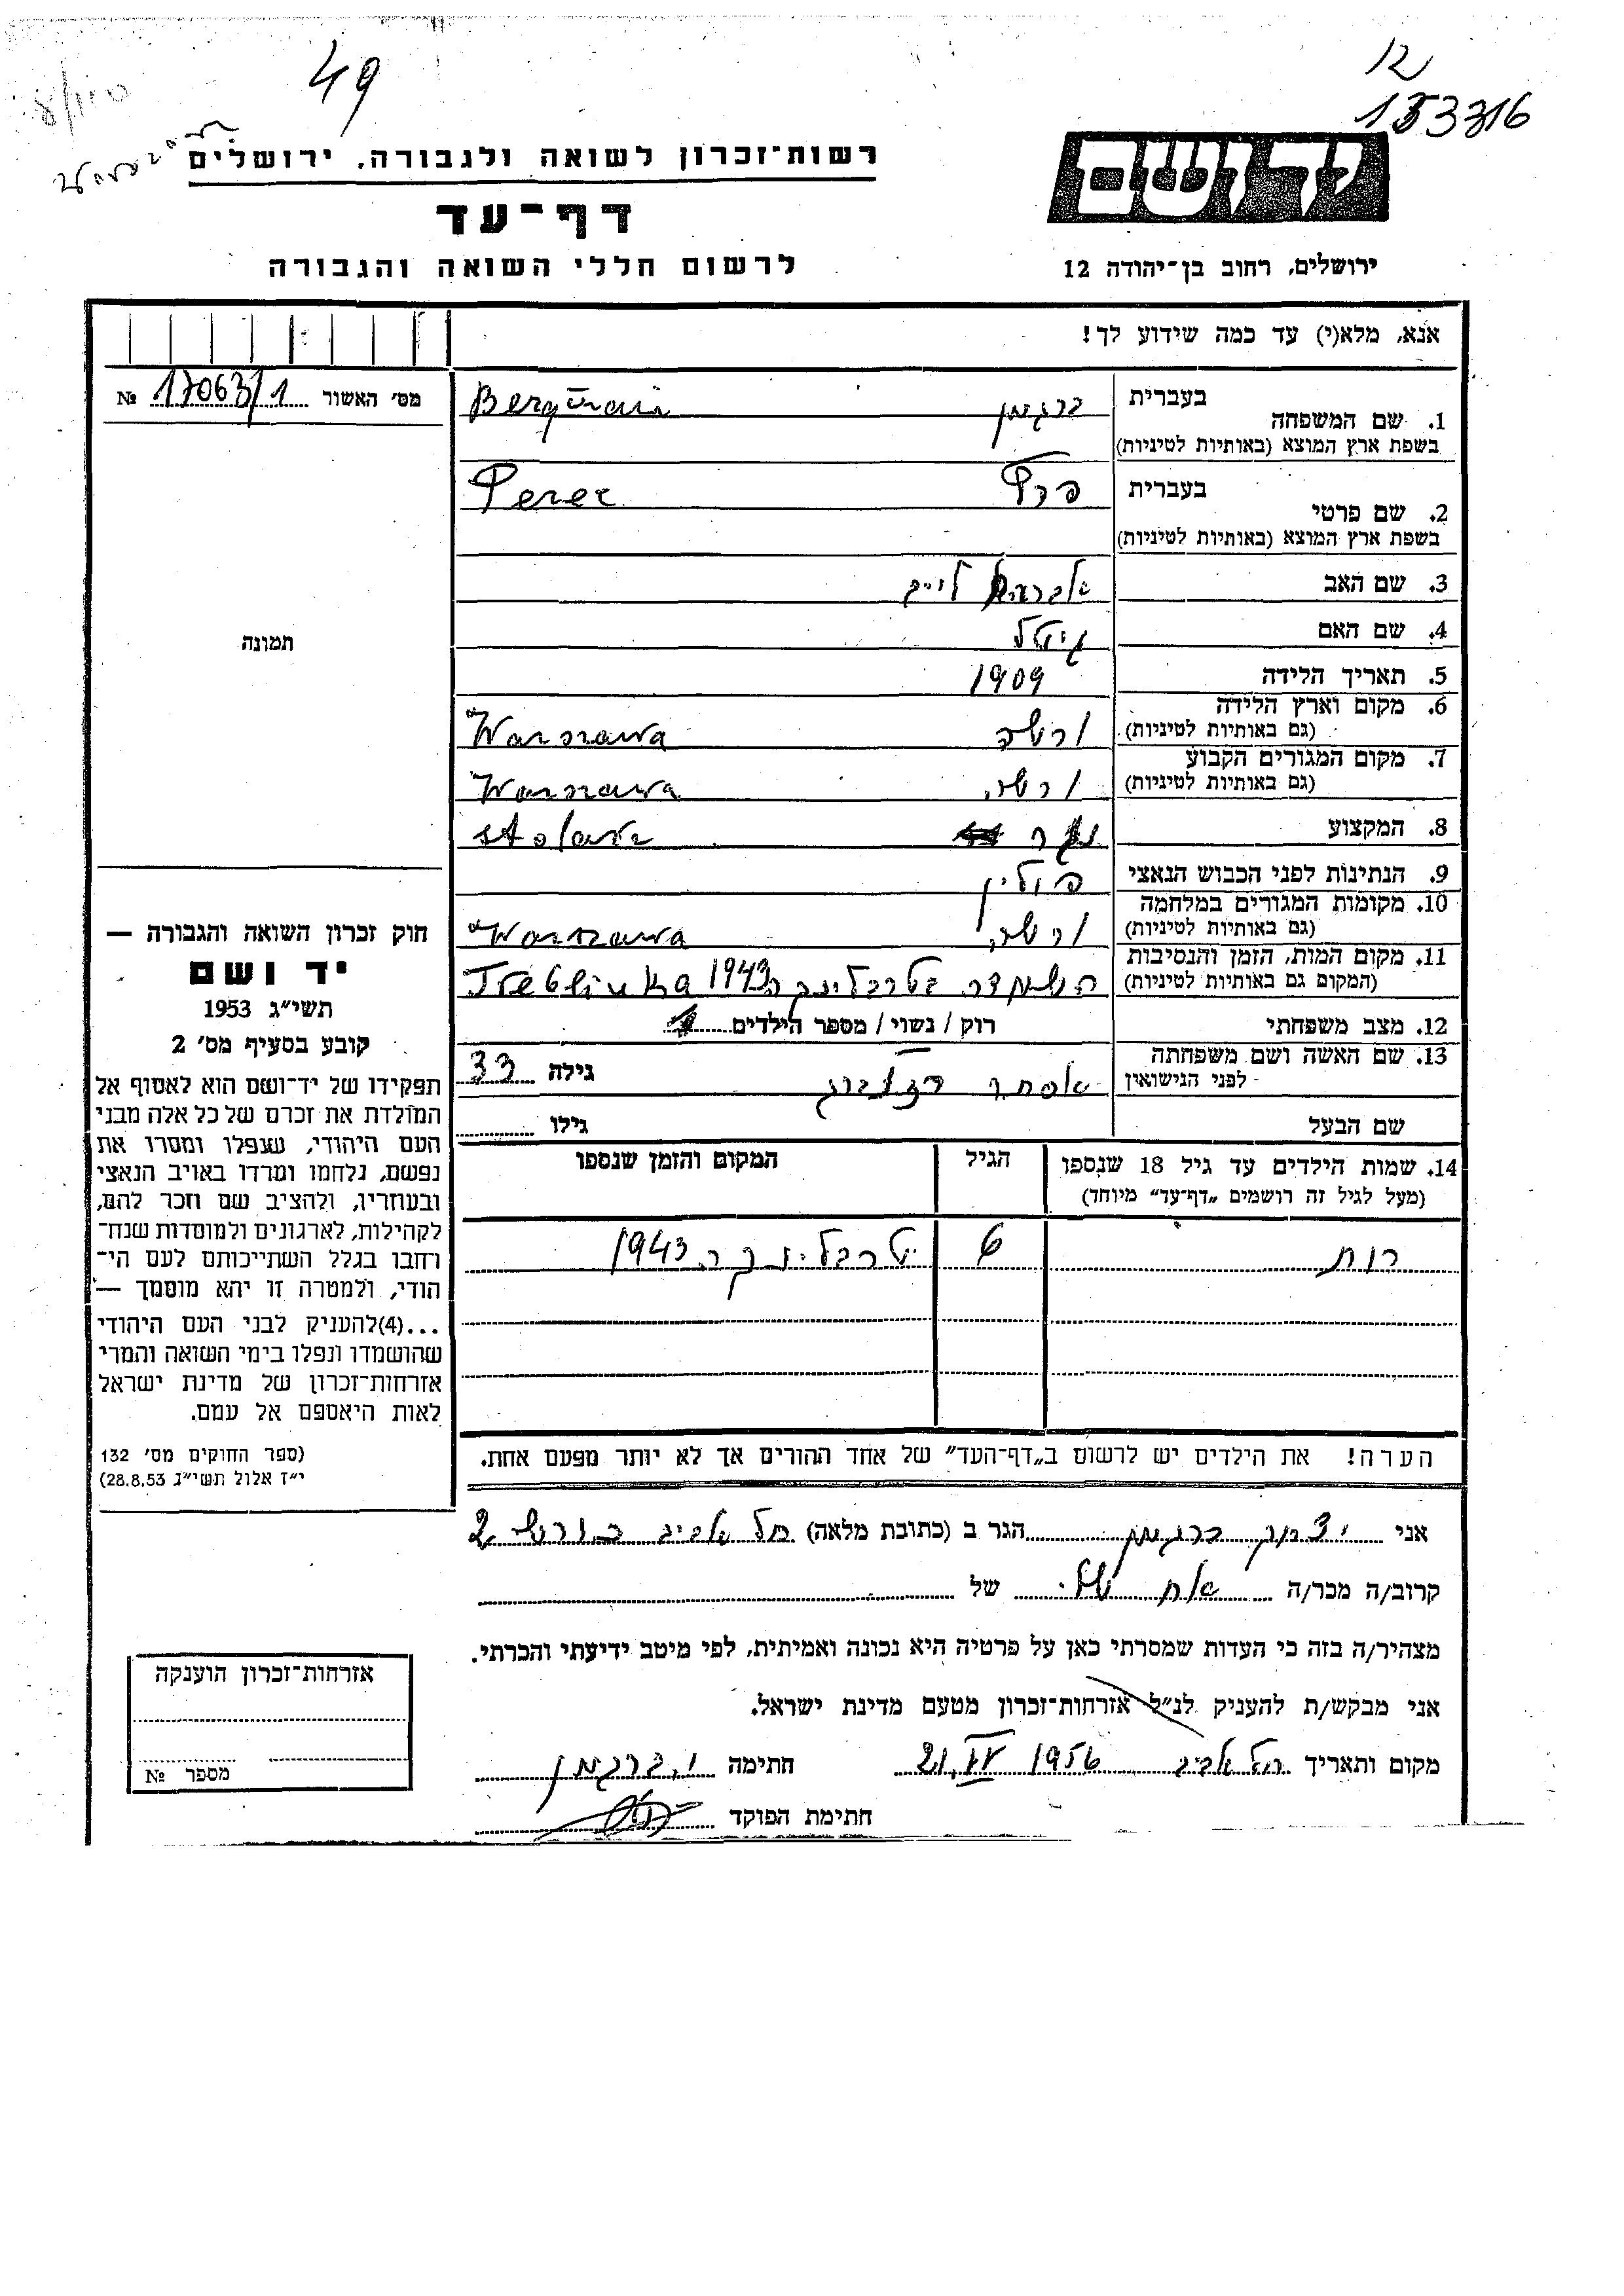 49
12
153316
רשות־זכרון לשואה ולגבורה, ירושלים
יד ושם
דף־עד
לרשום חללי השואה והגבורה
ירושלים, רחוב בן־יהודה 12
אנא, מלא(י) עד כמה שידוע לך!
מס׳ האשור 17063/1 №
1. שם המשפחה
בעברית ברגמן Bergman
בשפת ארץ המוצא (באותיות לטיניות)
2. שם פרטי
בעברית פרץ Perec
בשפת ארץ המוצא (באותיות לטיניות)
3. שם האב אברהם לייב
4. שם האם גיטל
תמונה
5. תאריך הלידה 1909
6. מקום וארץ הלידה ורשה Warszawa
(גם באותיות לטיניות)
7. מקום המגורים הקבוע ורשה Warszawa
(גם באותיות לטיניות)
8. המקצוע נגר stolarz
9. הנתינות לפני הכבוש הנאצי פולין
10. מקומות המגורים במלחמה ורשה Warszawa
(גם באותיות לטיניות)
11. מקום המות, הזמן והנסיבות 1943 בטרבלינקה Treblinka
(המקום גם באותיות לטיניות)
12. מצב משפחתי רוק / נשוי / מספר הילדים 1
13. שם האשה ושם משפחתה אסתר גילה 33
לפני הנישואין
שם הבעל גילו
14. שמות הילדים עד גיל 18 שנספו הגיל המקום והזמן שנספו
(מעל לגיל זה רושמים „דף־עד״ מיוחד)
רות 6 טרבלינקה 1943
הערה! את הילדים יש לרשום ב„דף־העד״ של אחד ההורים אך לא יותר מפעם אחת.
חוק זכרון השואה והגבורה —
יד ושם
תשי״ג 1953
קובע בסעיף מס׳ 2
תפקידו של יד־ושם הוא לאסוף אל
המולדת את זכרם של כל אלה מבני
העם היהודי, שנפלו ומסרו את
נפשם, נלחמו ומרדו באויב הנאצי
ובעוזריו, ולהציב שם וזכר להם,
לקהילות, לארגונים ולמוסדות שנח־
רחבו בגלל השתייכותם לעם הי־
הודי, ולמטרה זו יהא מוסמך —
...(4)להעניק לבני העם היהודי
שהושמדו ונפלו בימי השואה והמרי
אזרחות־זכרון של מדינת ישראל
לאות היאספם אל עמם.
(ספר החוקים מס׳ 132
י״ז אלול תשי״ג 28.8.53)
אני יצחק ברגמן הגר ב (כתובת מלאה) תל אביב 2
קרוב/ה מכר/ה אח שלי של
מצהיר/ה בזה כי העדות שמסרתי כאן על פרטיה היא נכונה ואמיתית, לפי מיטב ידיעתי והכרתי.
אני מבקש/ת להעניק לנ״ל אזרחות־זכרון מטעם מדינת ישראל.
מקום ותאריך תל אביב 1956 חתימה י. ברגמן
חתימת הפוקד
אזרחות־זכרון הוענקה
מספר №